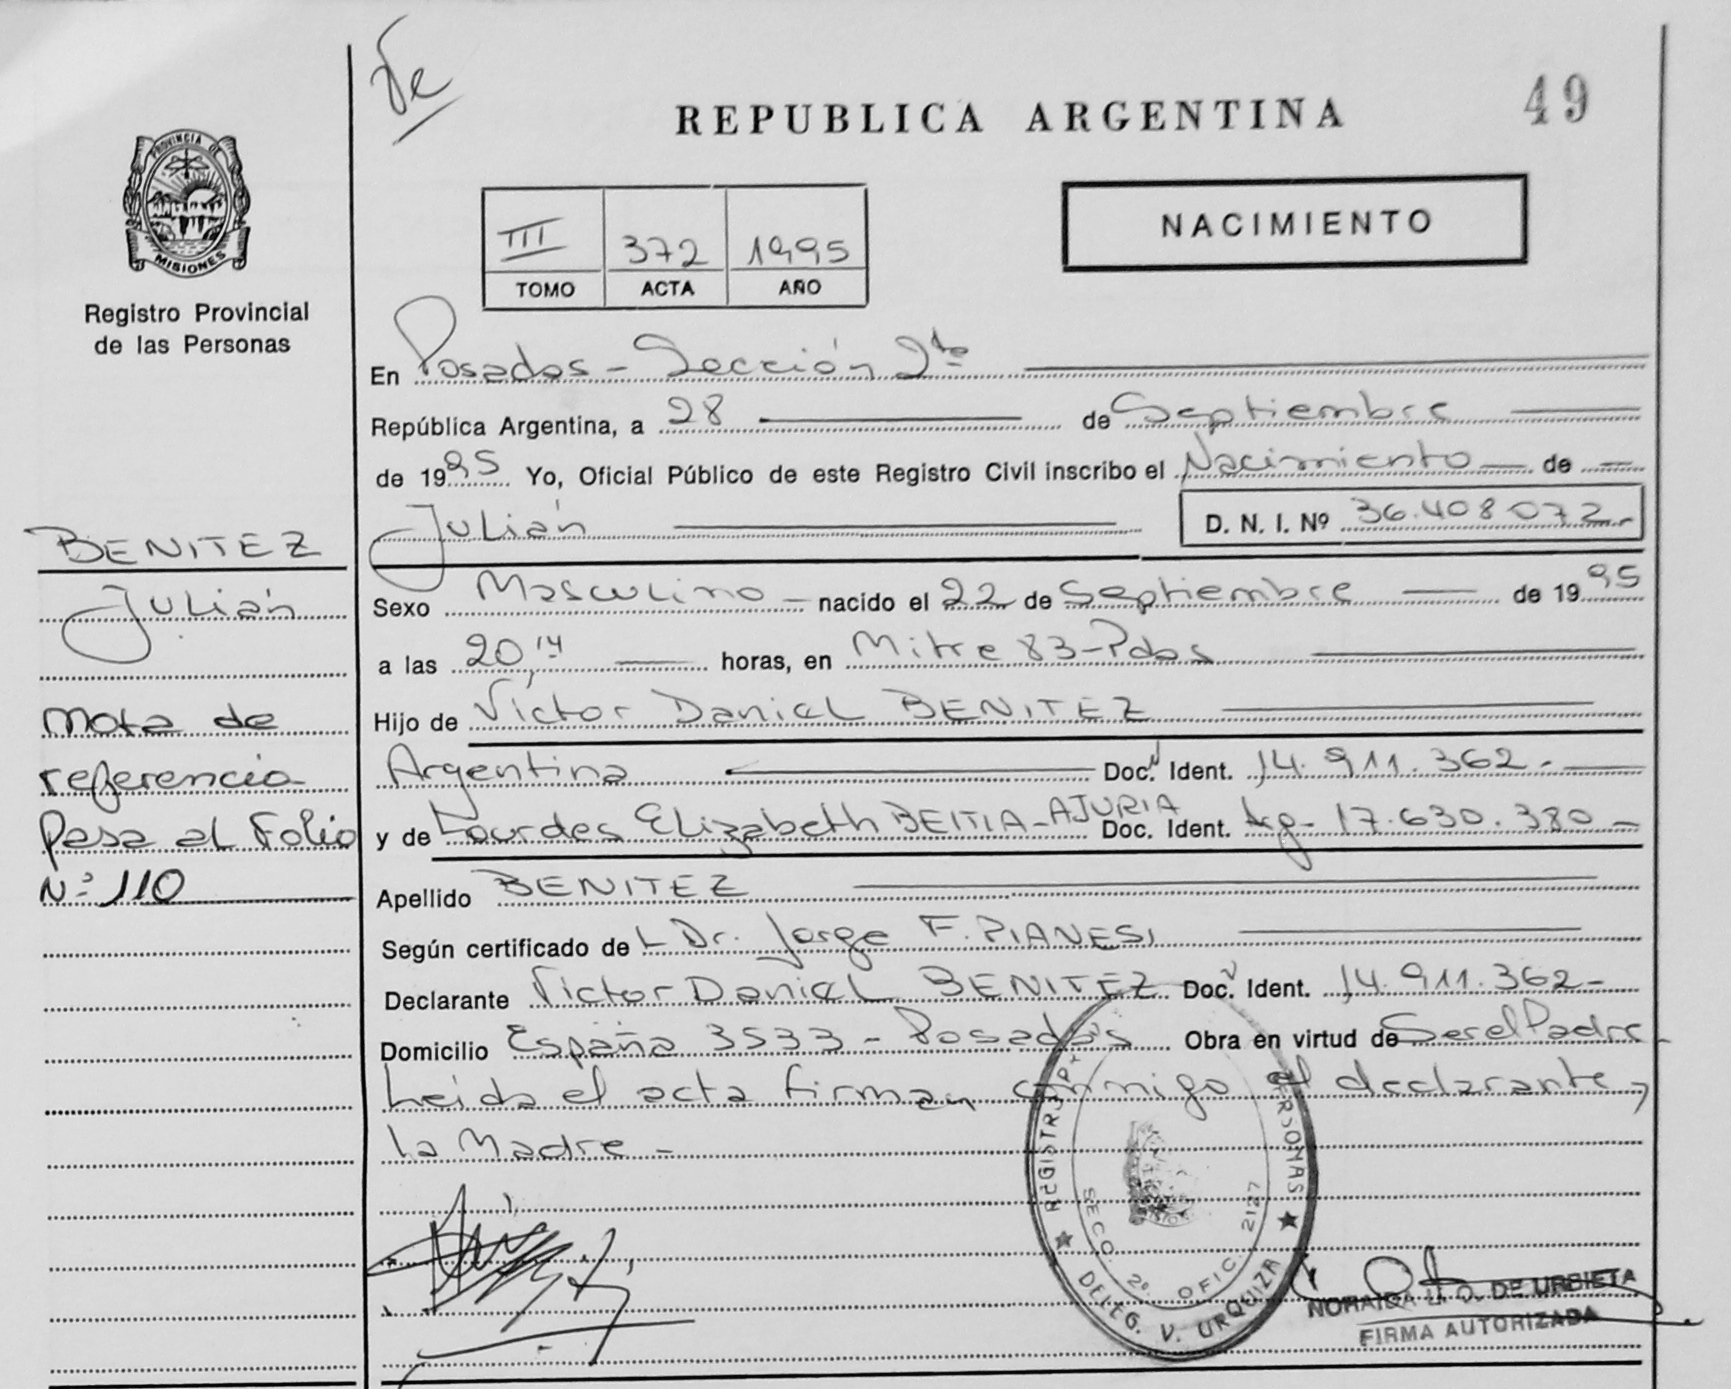 REPUBLICA ARGENTINA
49
PROVINCIA DE
MISIONES
Registro Provincial
de las Personas
NACIMIENTO
III 372 1995
TOMO ACTA AÑO
En Posadas - Sección 2da
República Argentina, a 28 de Septiembre
de 1995 Yo, Oficial Público de este Registro Civil inscribo el Nacimiento de
Julián D. N. I. Nº 36.408.072.-
BENITEZ
Julián
Sexo Masculino - nacido el 22 de Septiembre de 1995
a las 20,14 horas, en Mitre 83-Pdas
Hijo de Víctor Daniel BENITEZ
Argentina Doc. Ident. 14.911.362.-
y de Lourdes Elizabeth BEITIA-AJURIA Doc. Ident. Arg- 17.630.380-
Apellido BENITEZ
Según certificado de L Dr. Jorge F. PIANESI
Declarante Victor Daniel BENITEZ Doc. Ident. 14.911.362-
Domicilio España 3533 - Posadas Obra en virtud de Ser el Padre
Leida el acta firman conmigo el declarante,
La Madre -
Nota de
referencia
Pasa al Folio
Nº 110
PERSONAS
SECC. 2º OFIC. 2127
DELEG. V. URQUIZA
DE URBIETA
FIRMA AUTORIZADA